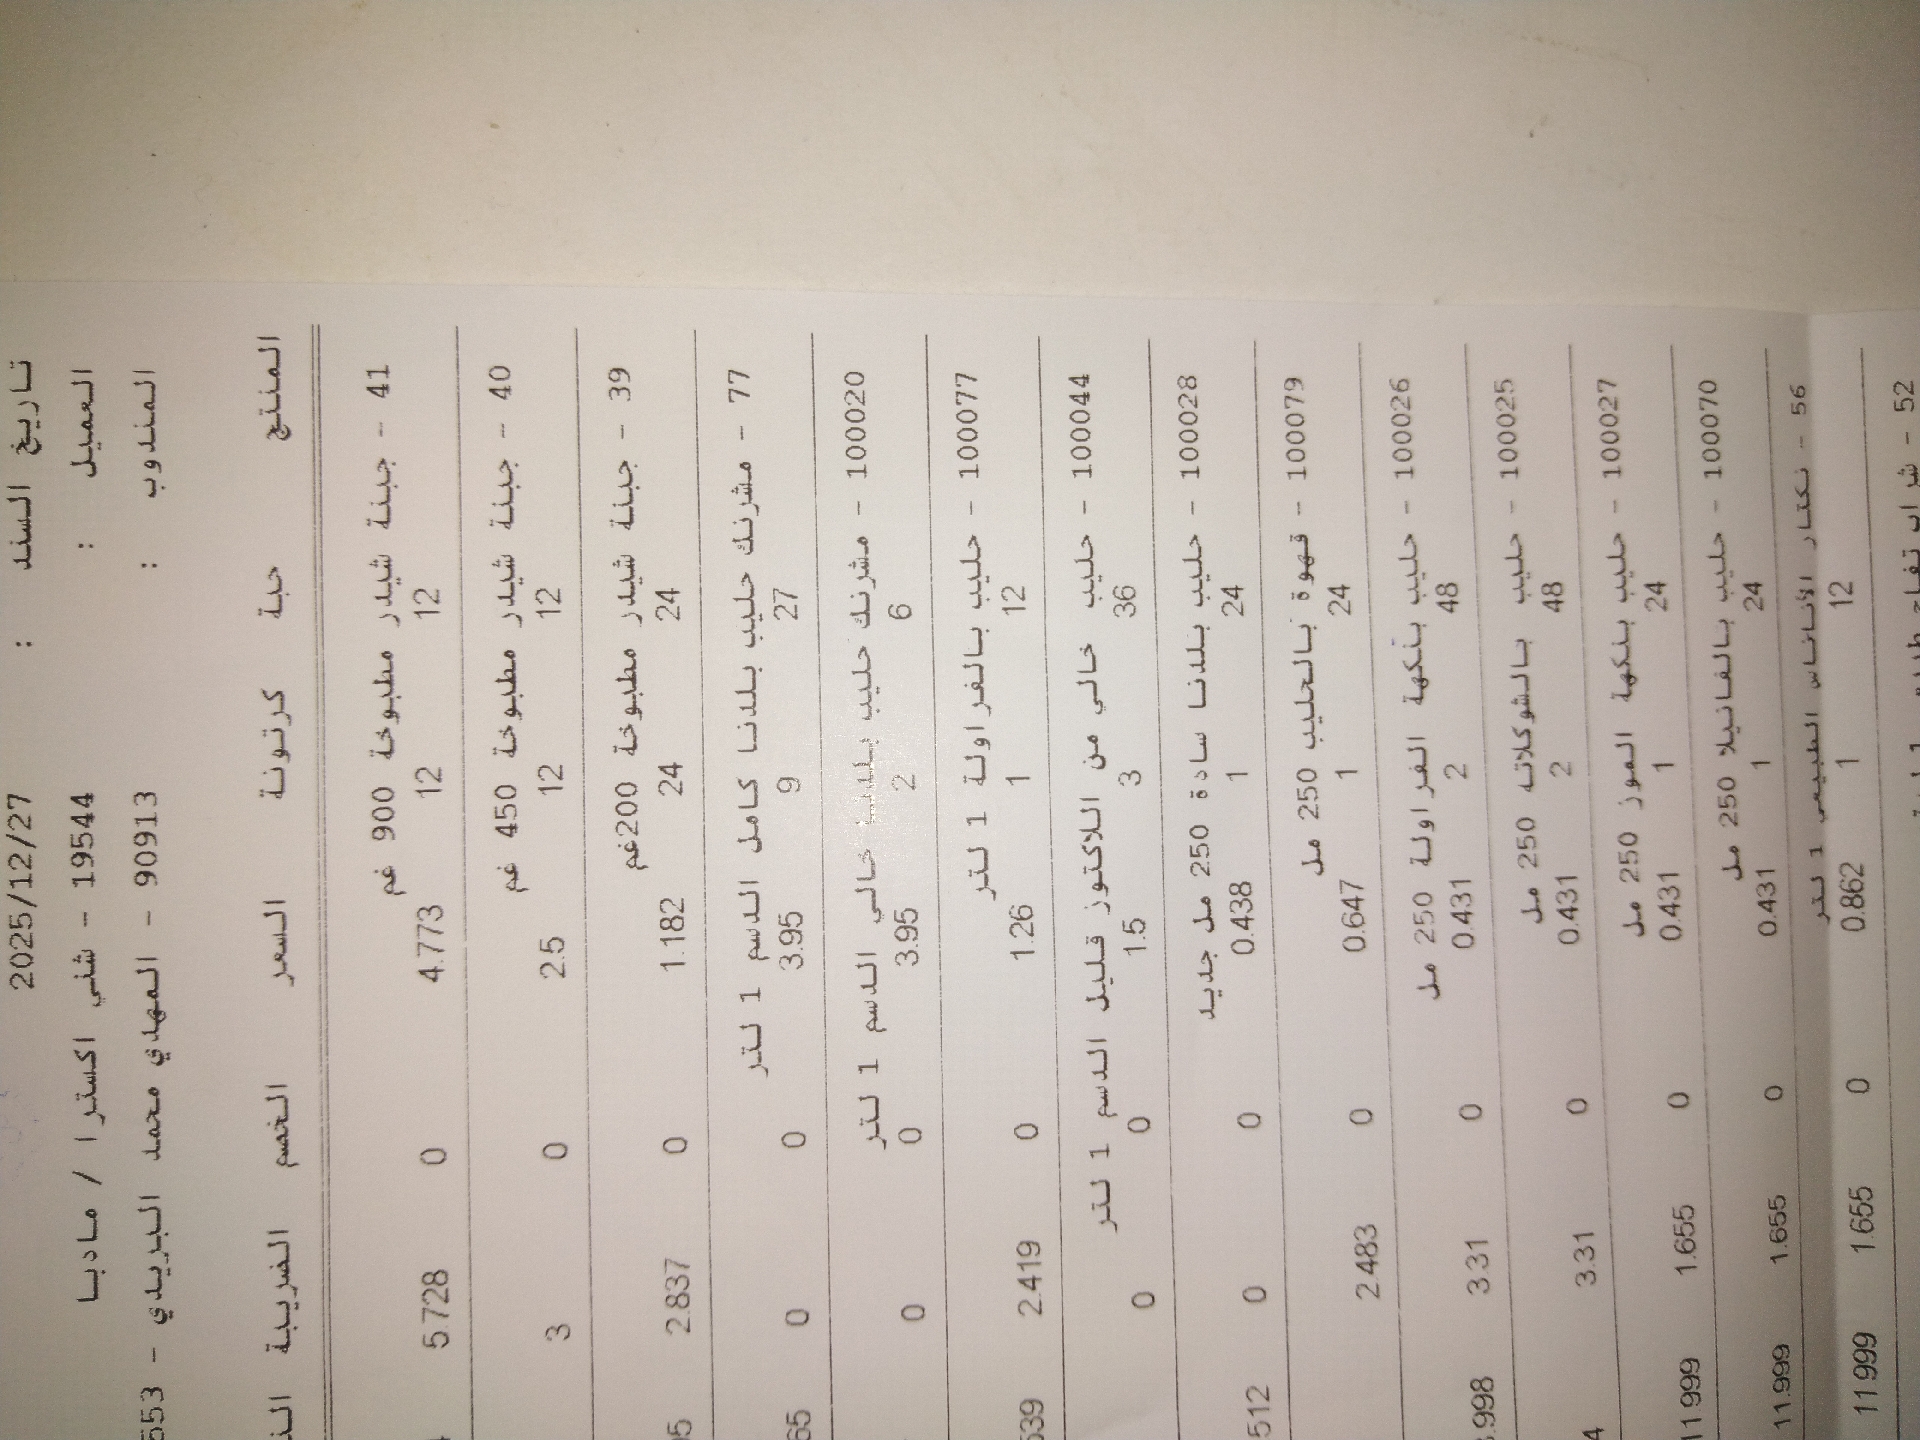 تاريخ السند : 2025/12/27
العميل : 19544 - شني اكسترا / مادبا
المندوب : 90913 - المهدي محمد البريدي - 553
المنتج حبة كرتونة السعر الخصم الضريبة
41 - جبنة شيدر مطبوخة 900 غم
12 12 4.773 0 5.728
40 - جبنة شيدر مطبوخة 450 غم
12 12 2.5 0 3
39 - جبنة شيدر مطبوخة 200غم
24 24 1.182 0 2.837
77 - مشرنك حليب بلدنا كامل الدسم 1 لتر
27 9 3.95 0 0
100020 - مشرنك حليب بلدنا خالي الدسم 1 لتر
6 2 3.95 0 0
100077 - حليب بالفراولة 1 لتر
12 1 1.26 0 2.419
100044 - حليب خالي من اللاكتوز قليل الدسم 1 لتر
36 3 1.5 0 0
100028 - حليب بلدنا سادة 250 مل جديد
24 1 0.438 0 0
100079 - قهوة بالحليب 250 مل
24 1 0.647 0 2.483
100026 - حليب بنكهة الفراولة 250 مل
48 2 0.431 0 3.31
100025 - حليب بالشوكلاته 250 مل
48 2 0.431 0 3.31
100027 - حليب بنكهة الموز 250 مل
24 1 0.431 0 1.655 11.999
100070 - حليب بالفانيلا 250 مل
24 1 0.431 0 1.655 11.999
56 - نكتار الأناناس الطبيعي 1 لتر
12 1 0.862 0 1.655 11.999
52 - شراب تفاح